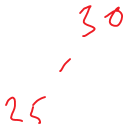 30
/
25